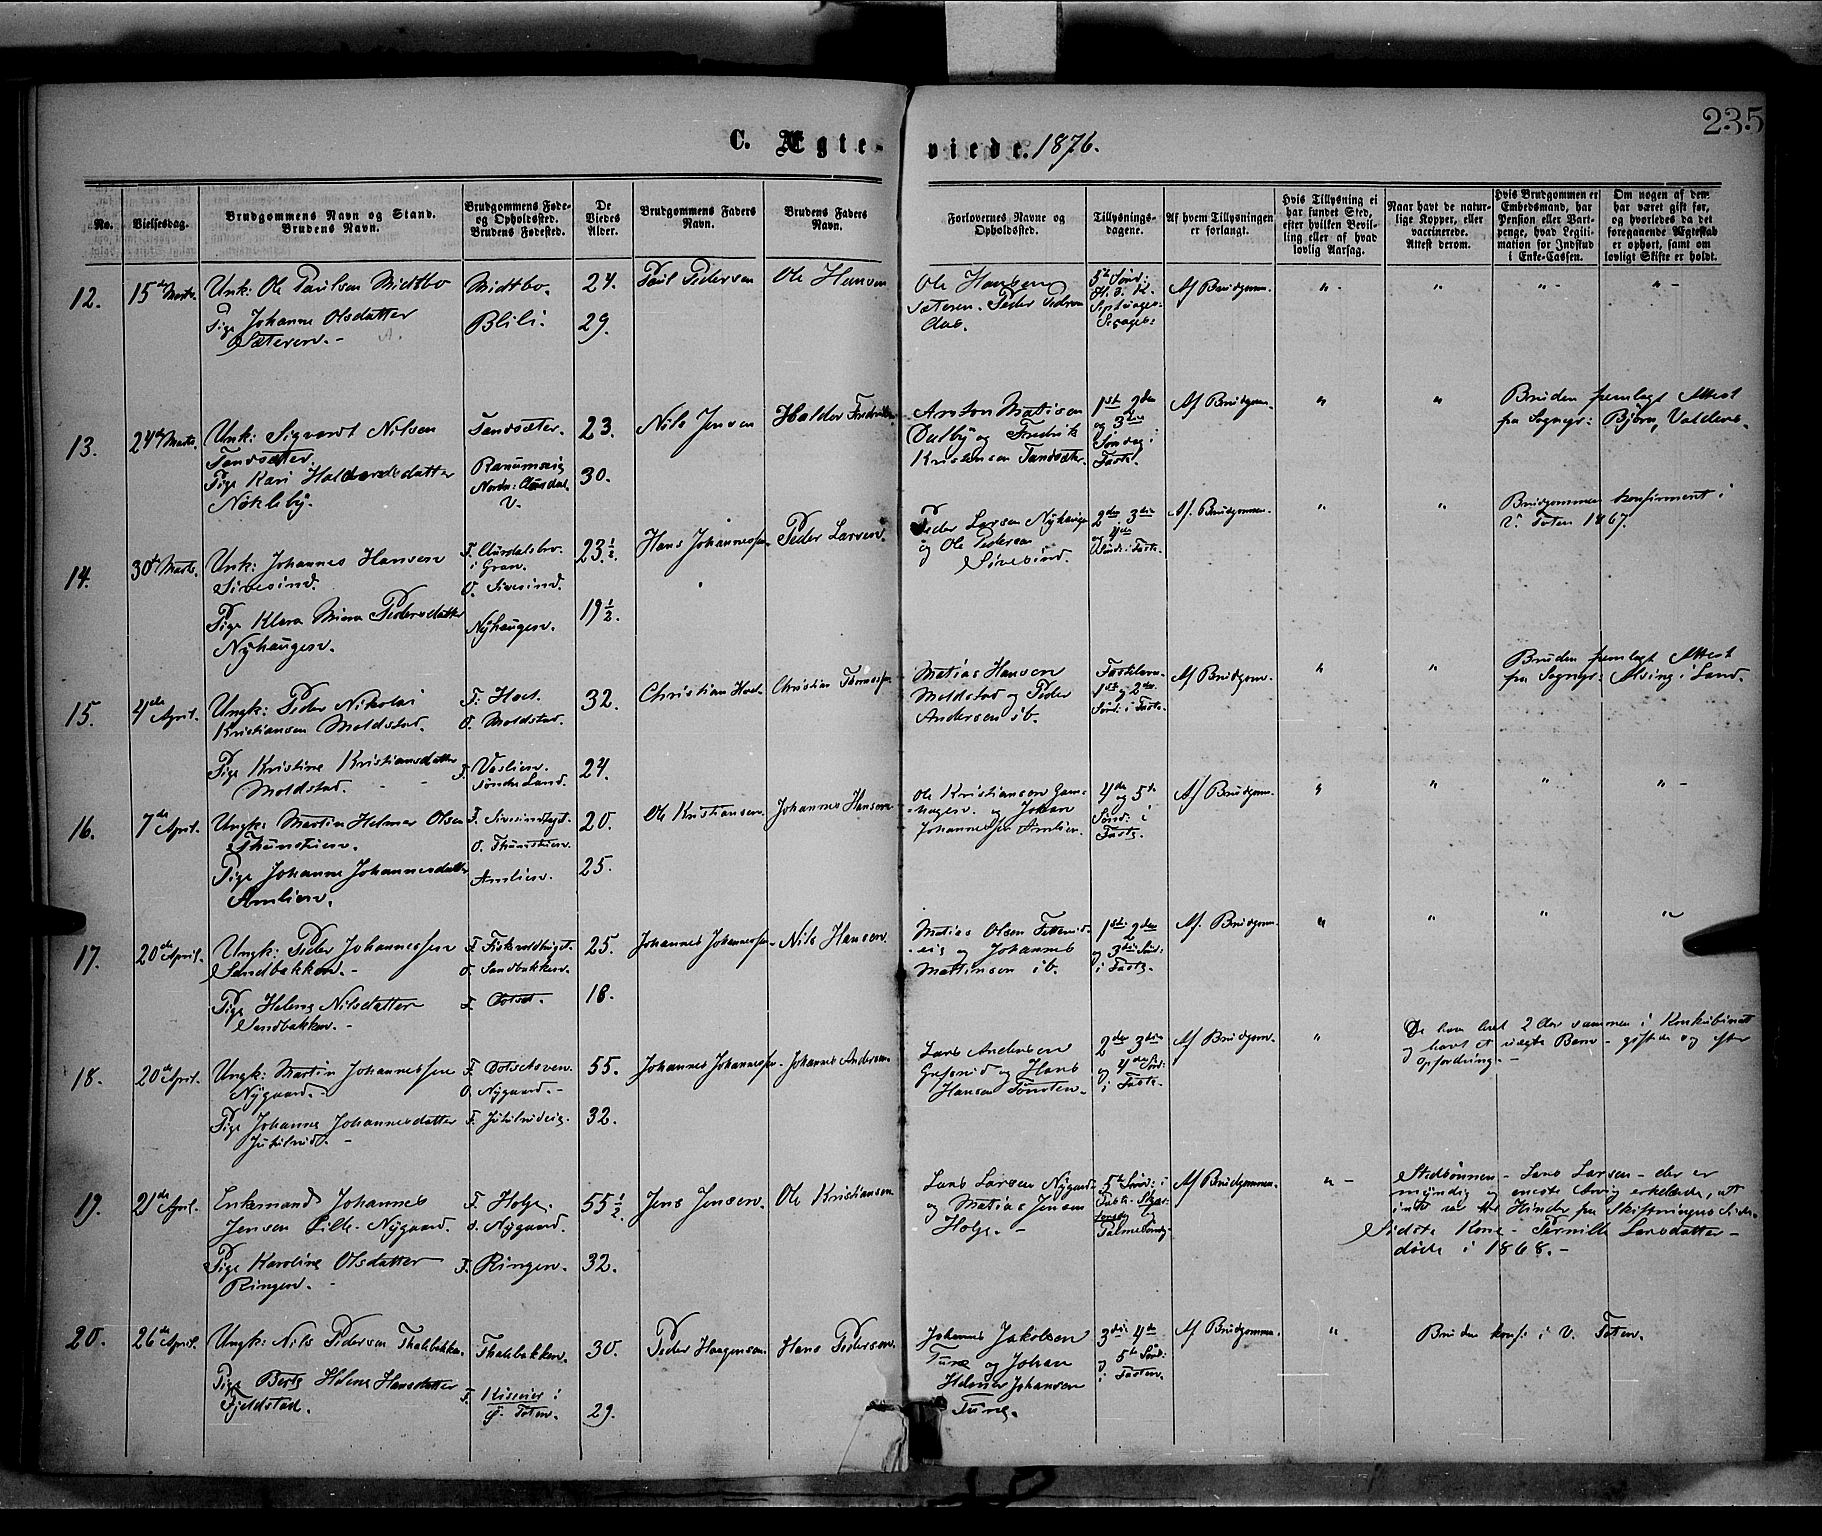 235
C. Ægte-viede. 1876.
No.
Vielsesdag.
Brudgommens Navn og Stand.
Brudens Navn.
Brudgommens Føde-
og Opholdssted.
Brudens Fødested.
De
Viedes
Alder.
Brudgommens Faders
Navn.
Brudens Faders
Navn.
Forlovernes Navne og
Opholdssted.
Tillysnings-
dagene.
Af hvem Tillysningen
er forlangt.
Hvis Tillysning ei
har fundet Sted,
efter hvilken Bevil-
ling eller af hvad
lovlig Aarsag.
Naar havt de natur-
lige Kopper, eller
vaccinerede.
Attest derom.
Hvis Brudgommen er
Embedsmand, har
Pension eller Vart-
penge, hvad Legiti-
mation for Indskud
i Enke-Cassen.
Om nogen af dem
har været gift før,
og hvorledes da det
foregaaende Ægteskab
er ophørt, samt om
lovligt Skifte er holdt.
12.
15de Marts.
Unk: Ole Paulsen Midtbo
Pige Johanne Olsdatter
Sæteren.
Midtbo.
Blili.
24.
29.
Paul Pedersen
Ole Hansen
Ole Hansen
Sæteren. Peder
5te Sønd:
H. 3. K.
Septuages:
Sexages:
Af Brudgom.
13.
24de Marts.
Unk: Sigvardt Nilsen
Tandsæter.
Pige Kari Haldorsdatter
Nøkleby.
Tandsæter.
Ranumseig
Nordr: Aurdal.
V.
23.
30.
Nils Jensen
Haldor
Anton Matisen
Dalby og Fredrik
Kristensen Tandsæter.
1ste 2den
og 3die
Søndag i
Faste.
Af Brudgom.
Bruden fremlagt Attest
fra Sognepr: Bjørn, Valders.
14.
30te Marts.
Unk: Johannes Hansen
Sivesind.
Pige Klara Mina Pedersdatter
Nyhaugen.
F. Aurdalsbro.
i Gran.
O. Sivesind.
Nyhaugen.
23½.
19½.
Hans Johannessen
Peder Larsen.
Peder Larsen Nyhaugen
og Ole Pedersen
Sivesind.
2den 3die
og 4de
Sønd: i Fast.
Af. Brudgom.
Brudgommen konfirmert i
V: Toten 1867.
15.
4de April.
Ungk: Peder Nikolai
Kristiansen Moldstad.
Pige Kristine Kristiansdatter
Moldstad.
F: Hoel.
O. Moldstad.
F. Vaslien.
Søndre Land.
32.
24.
Christian Hoel.
Christian
Matias Hansen
Moldstad og Peder
Andersen ib.
Fastelavn.
1ste og 2den
Sønd: i Faste.
Af Brudgom.
Bruden fremlagt Attest
fra Sognepr: Alving i Land.
16.
7de April.
Ungk: Martin Helmer Olsen
Thunstuen.
Pige Johanne Johannesdatter
Amlien.
F. Sivesindhagt.
O. Thunstuen.
Amlien.
20.
25.
Ole Kristiansen.
Johannes Hansen.
Ole Kristiansen
og Johan
Johannessen Amlien.
4de
og 5te
Sønd: i
Faste.
Af Brudgom.
17.
20de April.
Ungk: Peder Johannessen
Sandbakken.
Pige Helene Nilsdatter
Sandbakken.
O. Sandbakken.
25.
18.
Johannes Johannessen
Nils Hansen.
Matias Olsen
og Johannes
Martinsen ib.
1ste 2den
og 3die Sønd:
i Faste.
Af. Brudgom.
18.
20de April.
Ungk: Martin Johannessen
Nygaard.
Pige Johanne Johannesdatter
Jutulrud.
O. Nygaard.
F. Jutulrudeig.
55.
32.
Johannes Johannessen
Johannes Andersen
Lars Andersen
og Hans
Hansen
2den 3die
og 4de Sønd:
i Faste.
Af Brudgom.
De have levet 2 Aar sammen i Konkubinatt
og havt et uægte Barn - giftede sig efter
Opfordring.
19.
21de April.
Enkemand Johannes
Jensen Lille-Nygaard.
Pige Karoline Olsdatter
Ringen.
F. Holge.
O. Nygaard.
F. Ringen.
55½.
32.
Jens Jensen.
Ole Kristiansen
Lars Larsen Nygaard
og Matias Jensen
Holge.
5te Sønd: i
Faste.
og
Palmesøndg.
Af Brudgommen.
Stedsønnen - Lars Larsen - der er
myndig og eneste Arving erklærede, at
intet var til Hinder fra Skiftningens Side.
Sidste Kone - Pernille Larsdatter -
døde i 1868.
20.
26de April.
Ungk: Nils Pedersen Thalebakken.
Pige Berte Helene Hansdatter
Fjeldstad.
Thalebakken.
F.
Ø. Toten.
30.
29.
Peder Haagensen.
Hans Pedersen.
Johannes Jakobsen
Tune og Johan
Helmer Johansen
Tune.
3die 4de
og 5te Sønd:
i Fasten.
Af Brudgommen.
Bruden konf: i V. Toten.